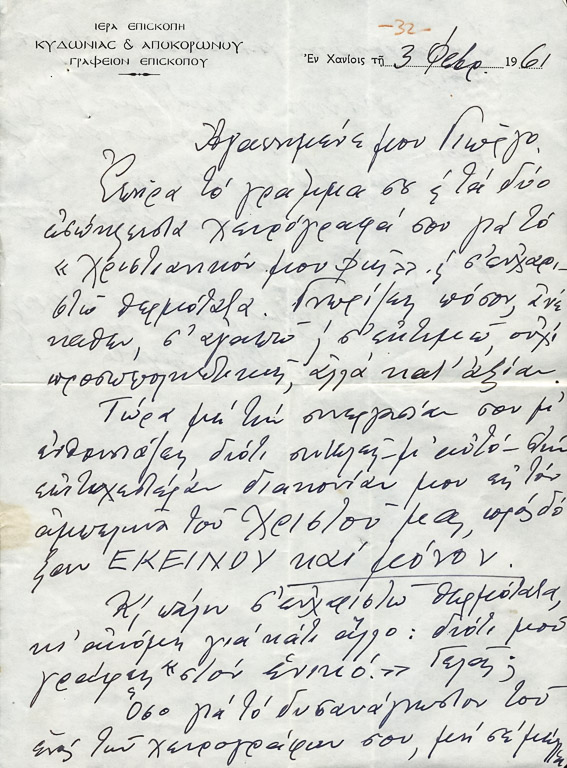 ΙΕΡΑ ΕΠΙΣΚΟΠΗ
ΚΥΔΩΝΙΑΣ & ΑΠΟΚΟΡΩΝΟΥ
ΓΡΑΦΕΙΟΝ ΕΠΙΣΚΟΠΟΥ
-32-
Ἐν Χανίοις τῇ 3 Φεβρ. 1961
Ἀγαπημένε μου Γιῶργο.
Ἐπῆρα τό γράμμα σου & τά δύο
χειρόγραφά σου γιά τό
«Χριστιανικόν μου φῶς» & σ' εὐχαρι-
στῶ θερμότατα. Γνωρίζεις πόσον, ἀνέ
καθεν, σ' ἀγαπῶ & σ' ἐκτιμῶ, οὐχί
προσωποληπτικῶς, ἀλλά κατ' ἀξίαν.
Τώρα μέ τήν συνεργασίαν σου μ'
ἐνθουσιάζεις διότι συντελεῖς - μ' αὐτό - στήν
διακονίαν μου εἰς τόν
ἀμπελῶνα τοῦ Χριστοῦ μας, πρός δό
ξαν ΕΚΕΙΝΟΥ καί μόνον.
Κι' πάλιν σ' εὐχαριστῶ θερμότατα,
κι' ἀκόμη γιά κάτι ἄλλο: διότι μοῦ
γράφεις «στόν ἑνικό.» Γελᾶς;
Ὅσο γιά τό δυσανάγνωστον τοῦ
ἑνός τῶν χειρογράφων σου, μή σέ μέλει